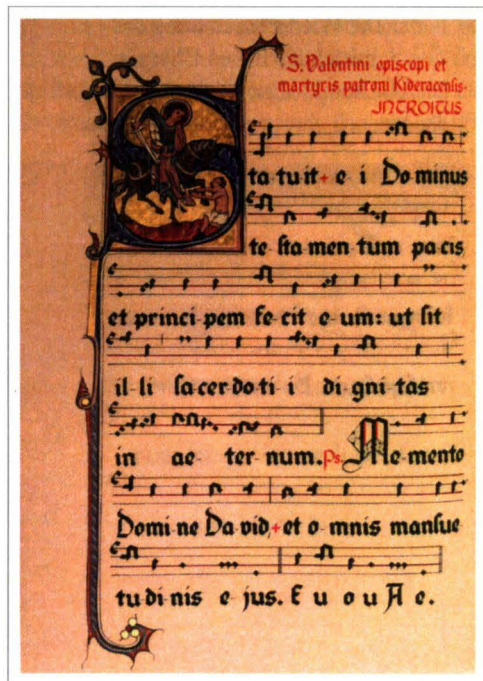 S. Valentini episcopi et
martyris patroni Kideracensis.
INTROITUS
Statuit + e i Dominus
te sta men tum pa cis
et princi pem fe cit e um: ut sit
il-li sa cer do ti i di gni tas
in ae- ter num. Ps. Memento
Domi ne Da vid, + et o mnis mansue
tu di nis e jus. E u o u A e.